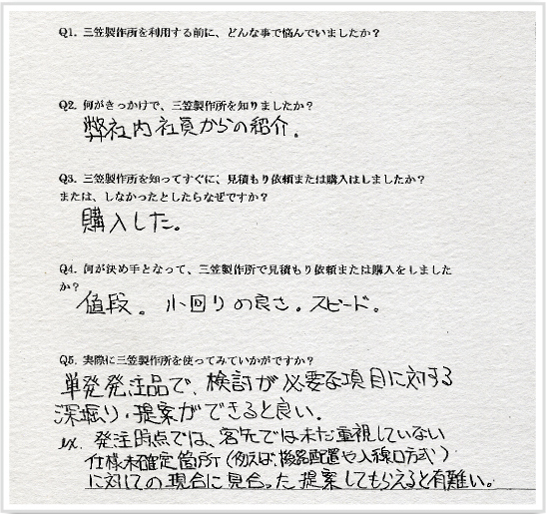 Q1. 三笠製作所を利用する前に、どんな事で悩んでいましたか？
Q2. 何がきっかけで、三笠製作所を知りましたか？
弊社内社員からの紹介.
Q3. 三笠製作所を知ってすぐに、見積もり依頼または購入はしましたか？
または、しなかったとしたらなぜですか？
購入した。
Q4. 何が決め手となって、三笠製作所で見積もり依頼または購入をしました
か？
値段。小回りの良さ. スピード.
Q5. 実際に三笠製作所を使ってみていかがですか？
単発発注品で、検討が必要な項目に対する
深堀り・提案ができると良い.
ex. 発注時点では、客先では未だ重視していない
仕様未確定箇所(例えば、機器配置や入線口方式)
に対しての現合に見合った提案してもらえると有難い。